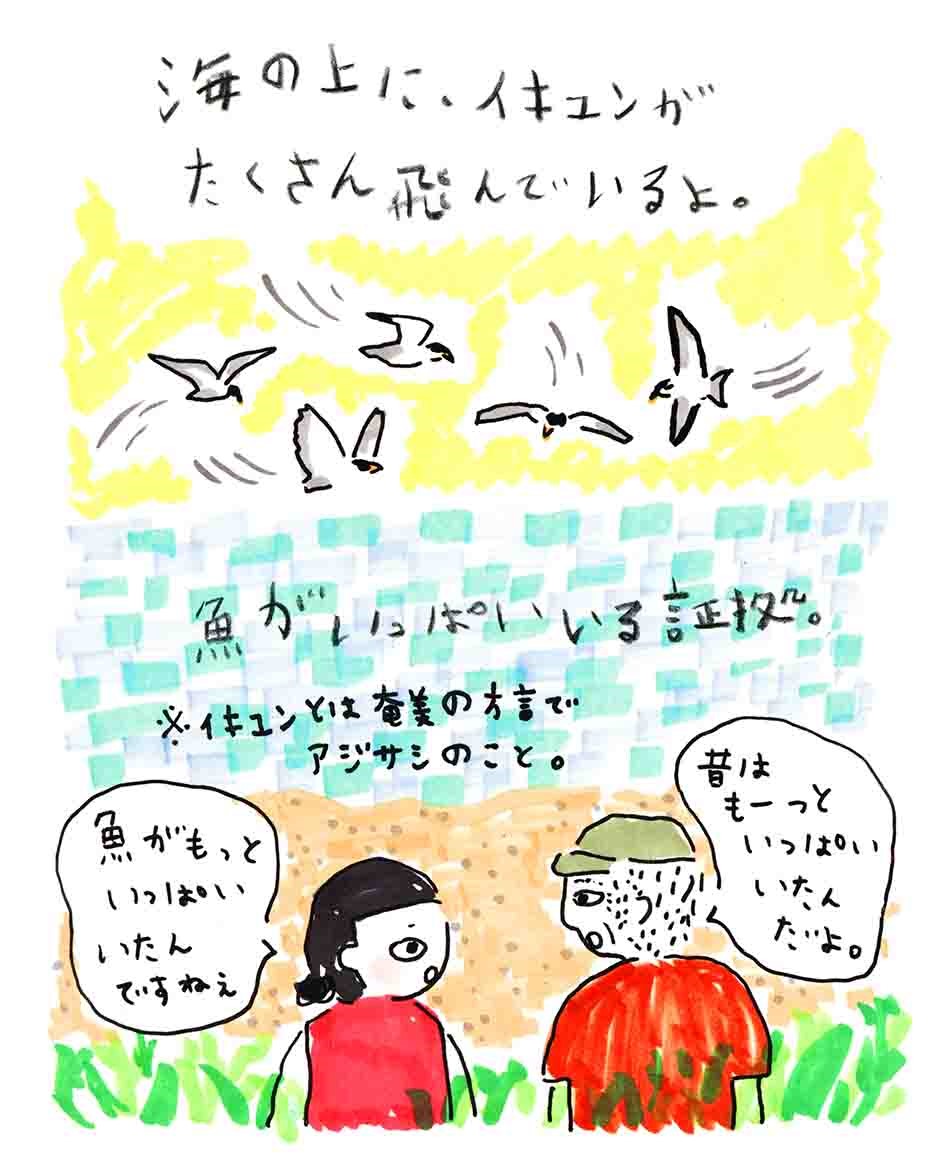 海の上に、イキュンが
たくさん飛んでいるよ。
魚がいっぱいいる証拠。
※イキュンとは奄美の方言で
アジサシのこと。
昔は
もーっと
いっぱい
いたん
だよ。
魚がもっと
いっぱい
いたん
ですねぇ